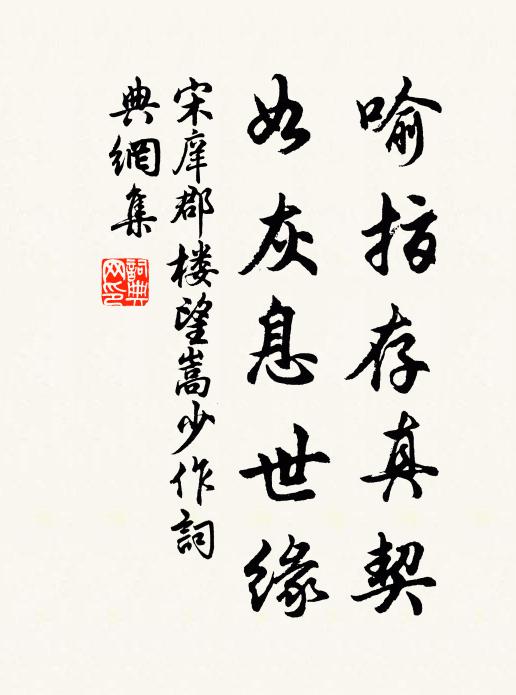 喻指存真契
如灰息世缘
宋庠郡楼望嵩少作詞
典網集
詞典
网印